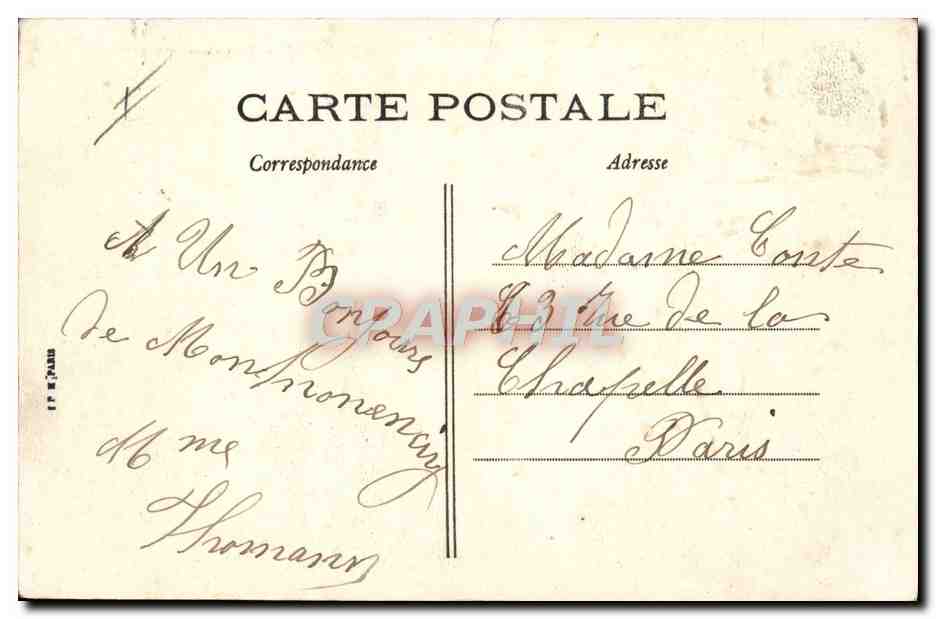 CARTE POSTALE
Correspondance
Adresse
Un Bonjours
de Monmonencig
Mme
Thomann
Madame Conte
63 rue de la
Chapelle
Paris
CRAPHIL
PARIS